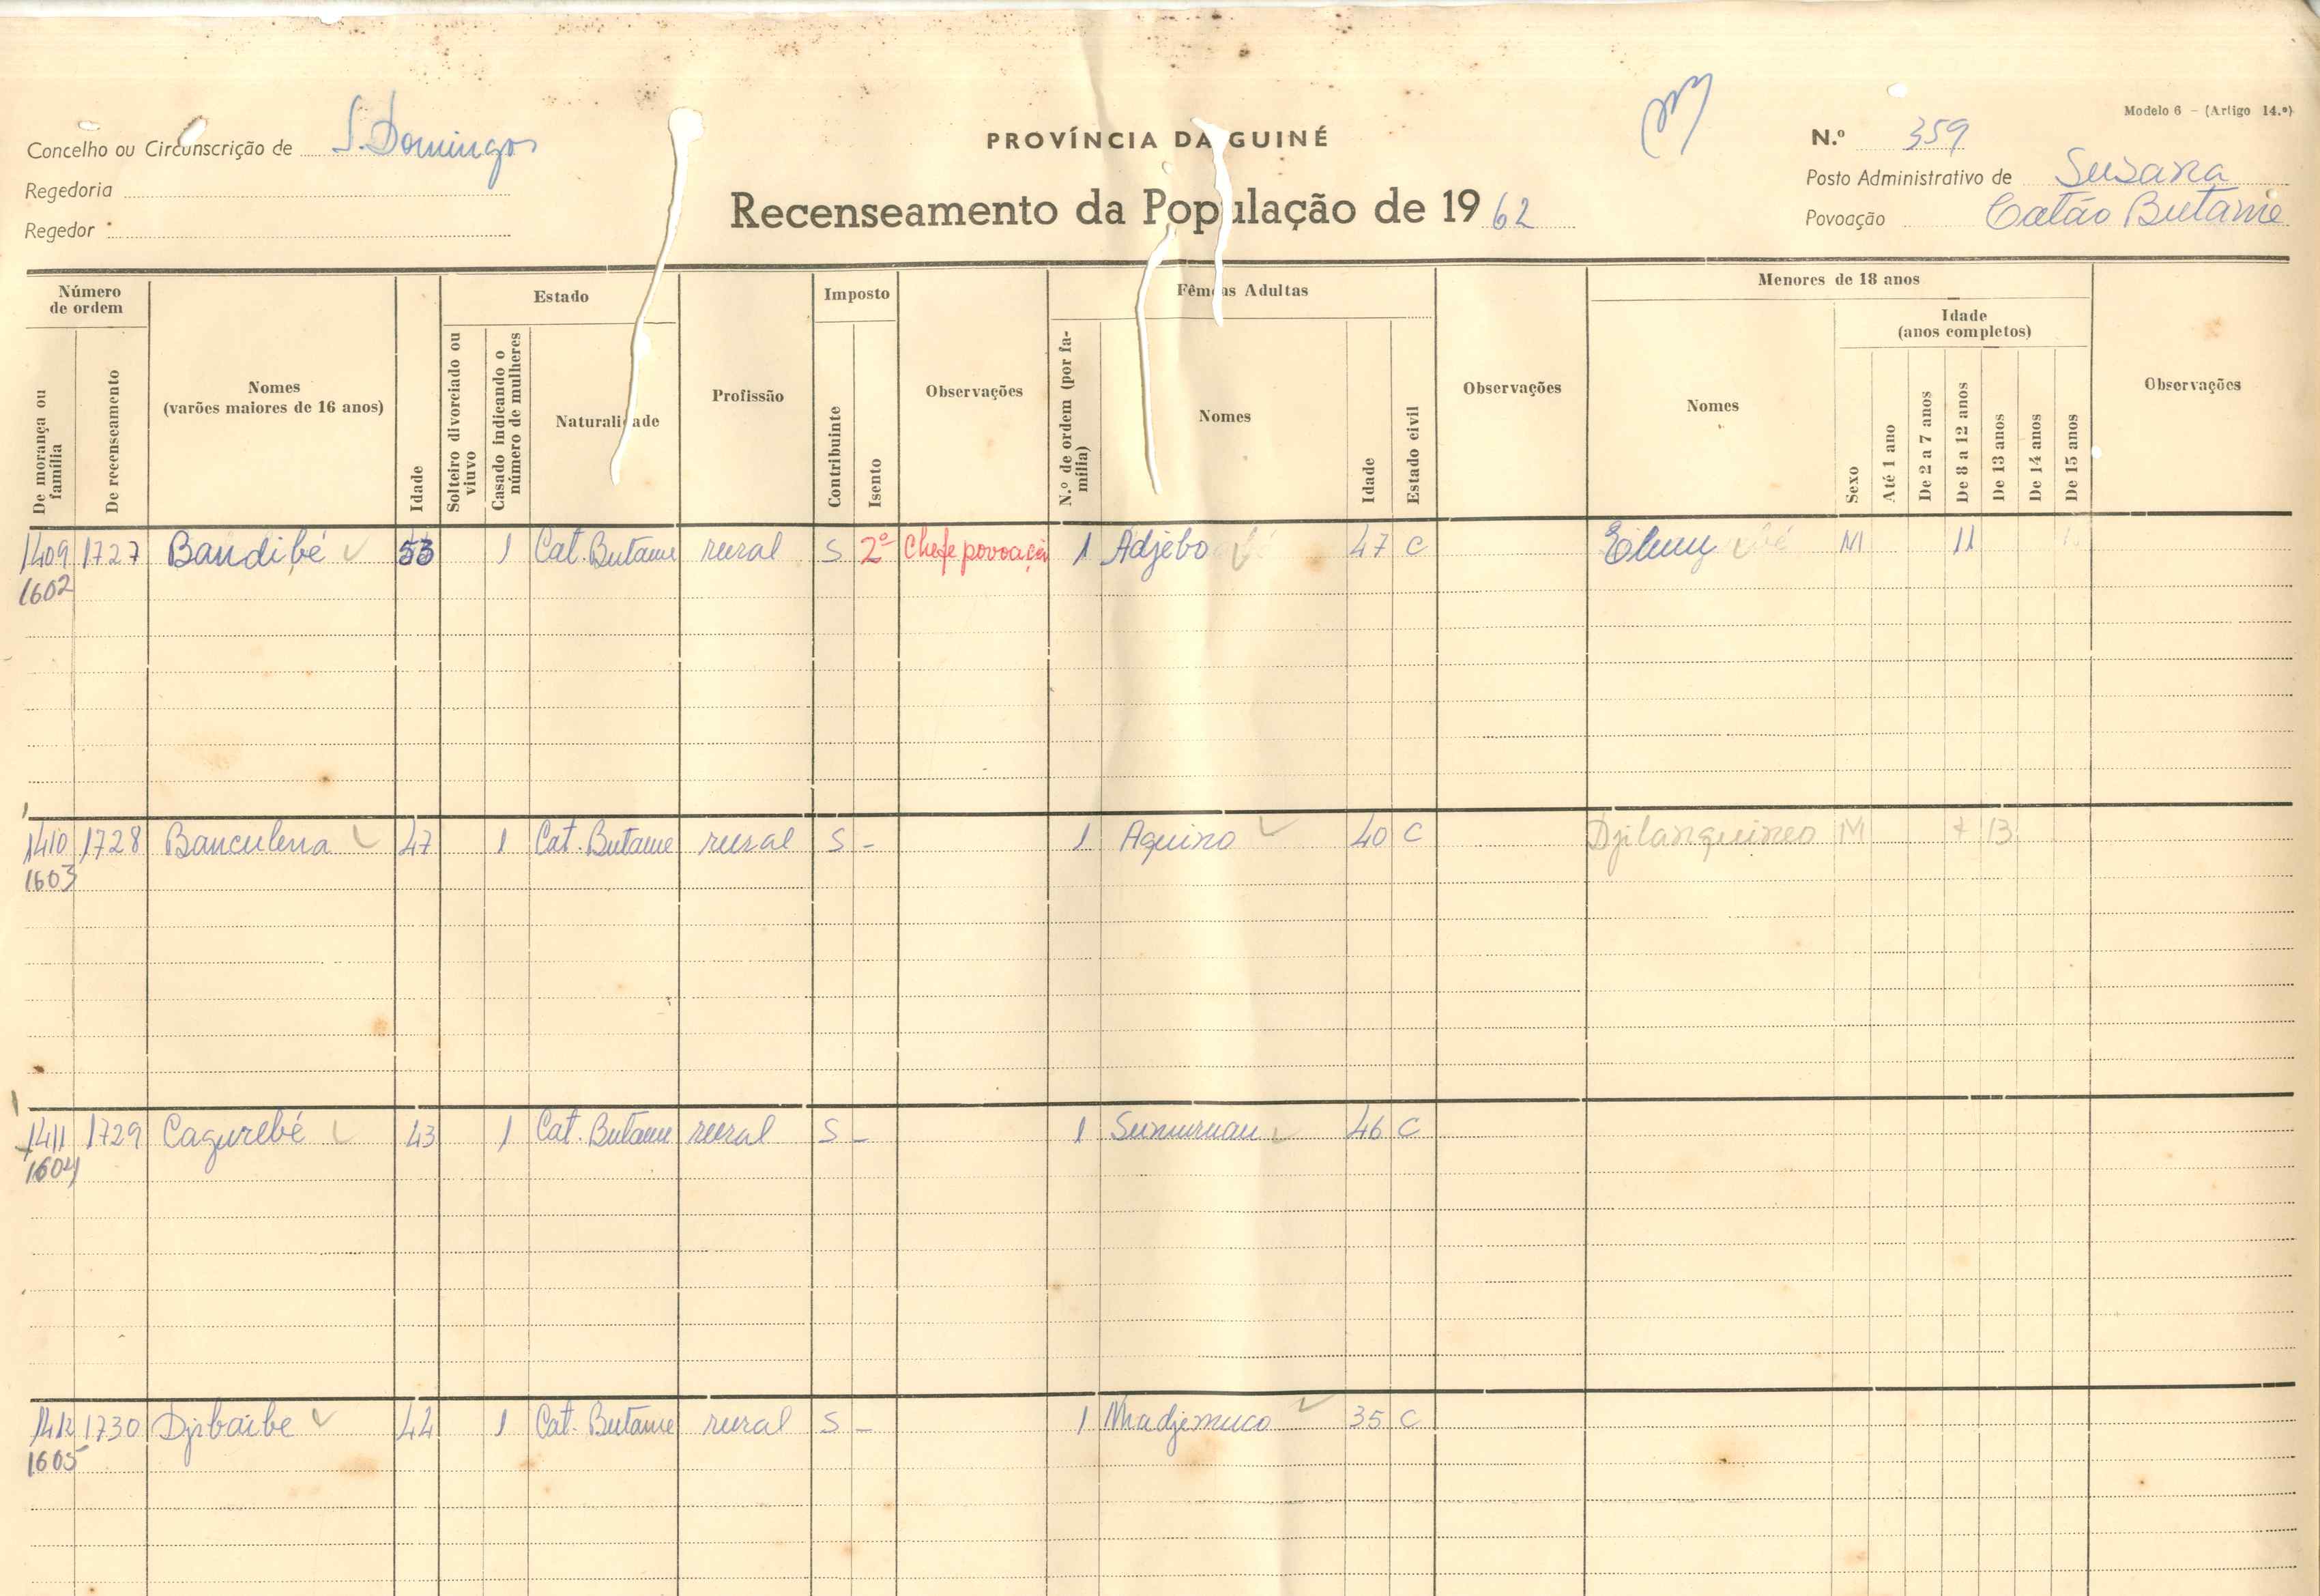 Modelo 6 - (Artigo 14.º)
Concelho ou Circunscrição de S. Domingos
PROVÍNCIA DA GUINÉ
N.º 359
Regedoria
Posto Administrativo de Susana
Regedor
Recenseamento da População de 1962
Povoação Catão Butame
Número de ordem
Estado
Imposto
Fêmeas Adultas
Menores de 18 anos
Idade (anos completos)
De morança ou família
De recenseamento
Nomes (varões maiores de 16 anos)
Idade
Solteiro divorciado ou viuvo
Casado indicando o número de mulheres
Naturalidade
Profissão
Contribuinte
Isento
Observações
N.º de ordem (por família)
Nomes
Idade
Estado civil
Observações
Nomes
Sexo
Até 1 ano
De 2 a 7 anos
De 8 a 12 anos
De 13 anos
De 14 anos
De 15 anos
Observações
1409 1727 Bandibé 53 1 Cat. Butame rural S 2º Chefe povoação 1 Adjebo 47 C M 11
1602
1410 1728 Banculena 47 1 Cat. Butame rural S - 1 Aquino 40 C Djilanquineo M 13
1603
1411 1729 Cagurebé 43 1 Cat. Butame rural S - 1 46 C
1604
1412 1730 Djibaibe 44 1 Cat. Butame rural S - 1 Nhadjemuco 35 C
1605